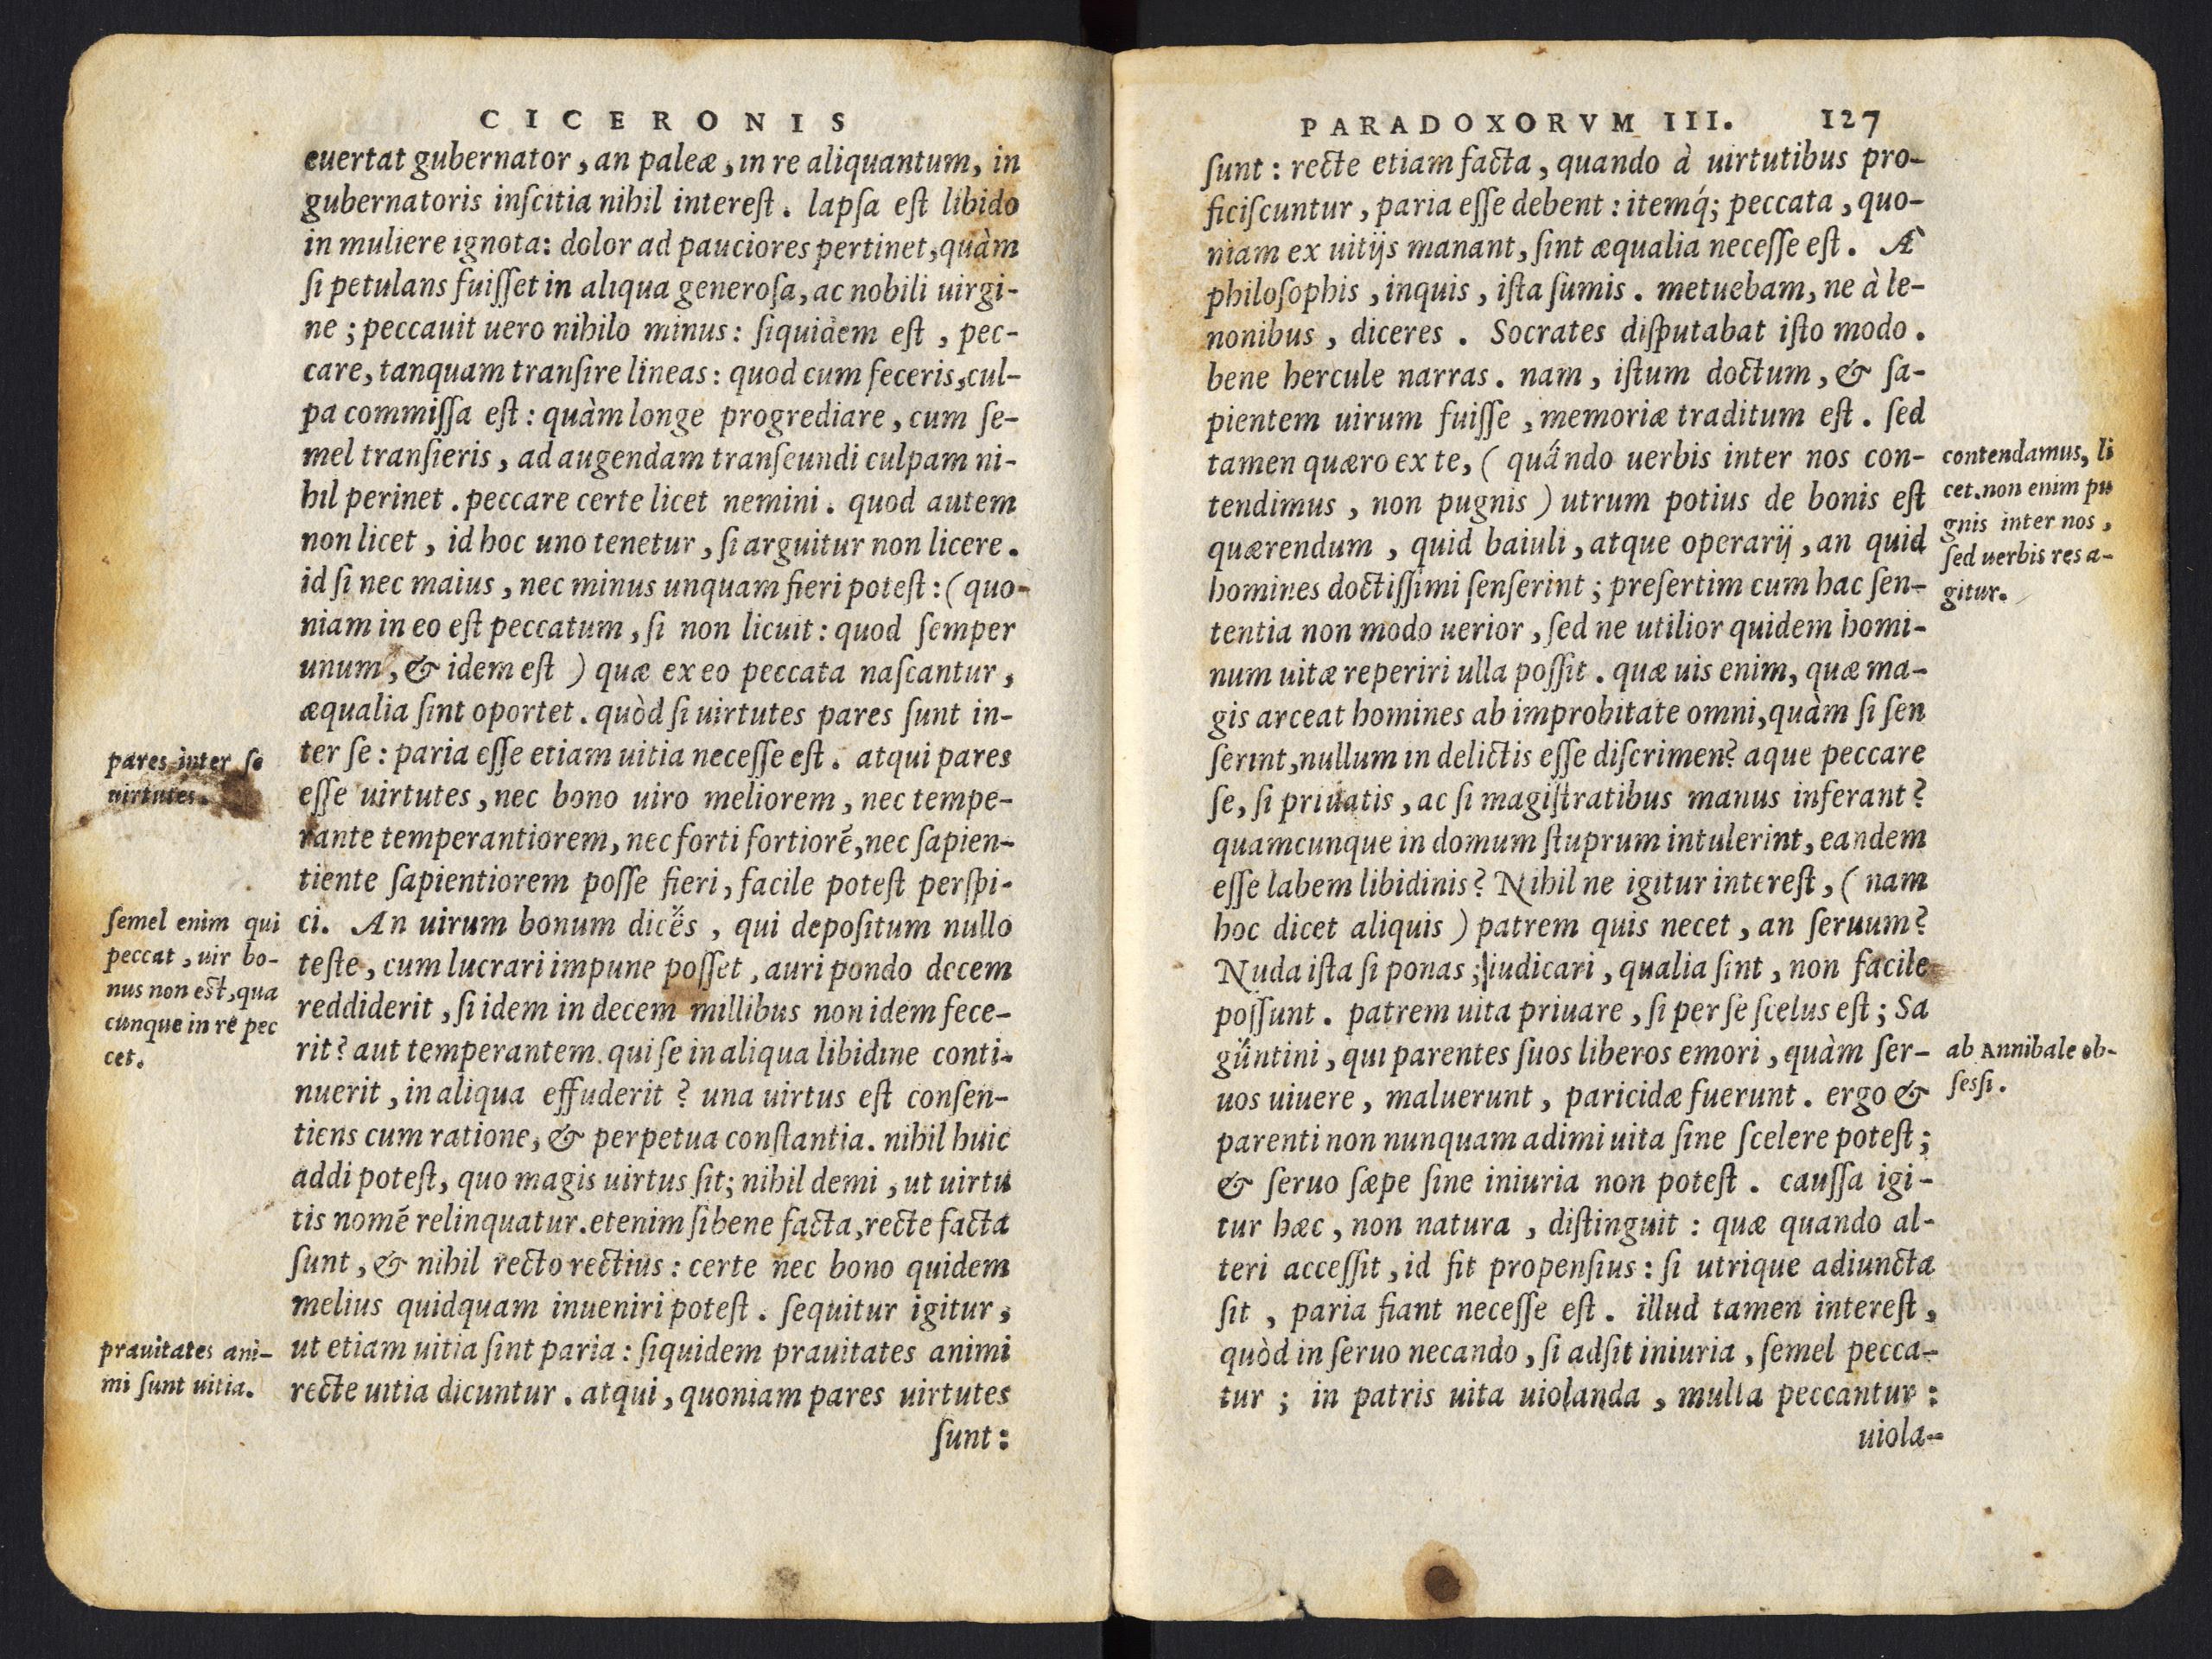 CICERONIS
euertat gubernator, an paleæ, in re aliquantum, in
gubernatoris inſcitia nihil intereſt. lapſa eſt libido
in muliere ignota: dolor ad pauciores pertinet, quàm
ſi petulans fuiſſet in aliqua generoſa, ac nobili uirgi-
ne; peccauit uero nihilo minus: ſiquidem eſt, pec-
care, tanquam tranſire lineas: quod cum feceris, cul-
pa commiſſa eſt: quàm longe progrediare, cum ſe-
mel tranſieris, ad augendam tranſeundi culpam ni-
hil perinet. peccare certe licet nemini. quod autem
non licet, id hoc uno tenetur, ſi arguitur non licere.
id ſi nec maius, nec minus unquam fieri poteſt: (quo-
niam in eo eſt peccatum, ſi non licuit: quod ſemper
unum, & idem eſt) quæ ex eo peccata naſcantur,
æqualia ſint oportet. quòd ſi uirtutes pares ſunt in-
ter ſe: paria eſſe etiam uitia neceſſe eſt. atqui pares
eſſe uirtutes, nec bono uiro meliorem, nec tempe-
rante temperantiorem, nec forti fortiorẽ, nec ſapien-
tiente ſapientiorem poſſe fieri, facile poteſt perſpi-
ci. An uirum bonum dices, qui depoſitum nullo
teſte, cum lucrari impune poſſet, auri pondo decem
reddiderit, ſi idem in decem millibus non idem fece-
rit? aut temperantem. qui ſe in aliqua libidine conti-
nuerit, in aliqua effuderit? una uirtus eſt conſen-
tiens cum ratione, & perpetua conſtantia. nihil huic
addi poteſt, quo magis uirtus ſit; nihil demi, ut uirtu
tis nomẽ relinquatur. etenim ſi bene facta, recte facta
ſunt, & nihil recto rectius: certe nec bono quidem
melius quidquam inueniri poteſt. ſequitur igitur,
ut etiam uitia ſint paria: ſiquidem prauitates animi
recte uitia dicuntur. atqui, quoniam pares uirtutes
ſunt:
pares inter ſe
uirtutes.
ſemel enim qui
peccat, uir bo-
nus non eſt, qua
cunque in re pec
cet.
prauitates ani-
mi ſunt uitia.
PARADOXORVM III. 127
ſunt: recte etiam facta, quando à uirtutibus pro-
ficiſcuntur, paria eſſe debent: itemq́; peccata, quo-
niam ex uitijs manant, ſint æqualia neceſſe eſt. À
philoſophis, inquis, iſta ſumis. metuebam, ne à le-
nonibus, diceres. Socrates diſputabat iſto modo.
bene hercule narras. nam, iſtum doctum, & ſa-
pientem uirum fuiſſe, memoriæ traditum eſt. ſed
tamen quæro ex te, (quando uerbis inter nos con-
tendimus, non pugnis) utrum potius de bonis eſt
quærendum, quid baiuli, atque operarij, an quid
homines doctiſſimi ſenſerint; preſertim cum hac ſen-
tentia non modo uerior, ſed ne utilior quidem homi-
num uitæ reperiri ulla poſſit. quæ uis enim, quæ ma-
gis arceat homines ab improbitate omni, quàm ſi ſen
ſerint, nullum in delictis eſſe diſcrimen? aque peccare
ſe, ſi priuatis, ac ſi magiſtratibus manus inferant?
quamcunque in domum ſtuprum intulerint, eandem
eſſe labem libidinis? Nihil ne igitur intereſt, (nam
hoc dicet aliquis) patrem quis necet, an ſeruum?
Nuda iſta ſi ponas; iudicari, qualia ſint, non facile
poſſunt. patrem uita priuare, ſi per ſe ſcelus eſt; Sa
guntini, qui parentes ſuos liberos emori, quàm ſer-
uos uiuere, maluerunt, paricidæ fuerunt. ergo &
parenti non nunquam adimi uita ſine ſcelere poteſt;
& ſeruo ſæpe ſine iniuria non poteſt. cauſſa igi-
tur hæc, non natura, diſtinguit: quæ quando al-
teri acceſſit, id fit propenſius: ſi utrique adiuncta
ſit, paria fiant neceſſe eſt. illud tamen intereſt,
quòd in ſeruo necando, ſi adſit iniuria, ſemel pecca-
tur; in patris uita uiolanda, multa peccantur:
uiola-
contendamus, li
cet. non enim pu
gnis inter nos,
ſed uerbis res a-
gitur.
ab Annibale ob-
ſeſſi.